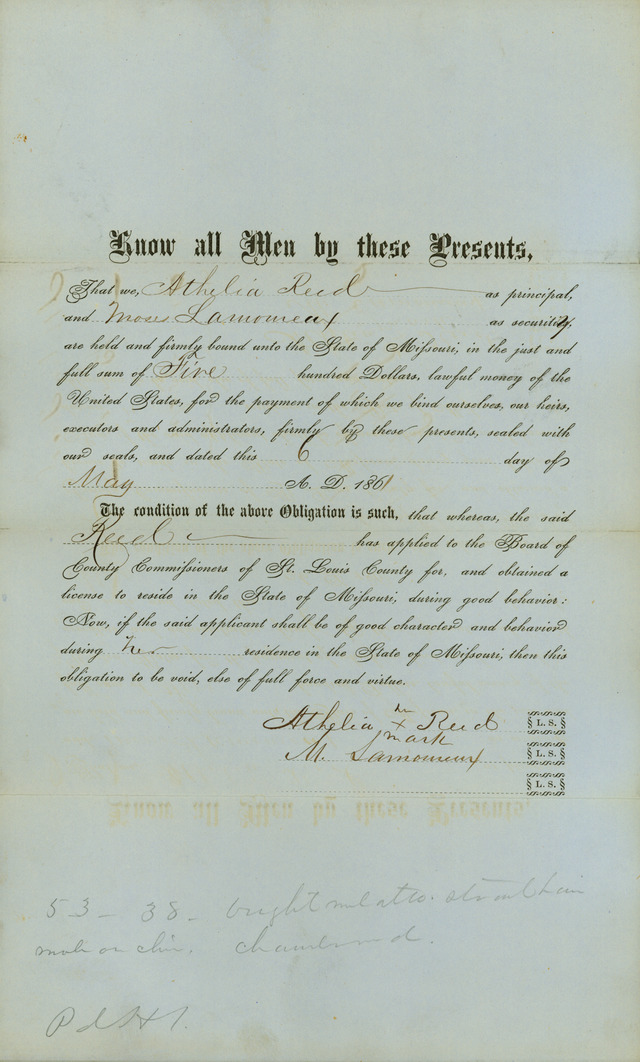 Know all Men by these Presents,
That we, Athelia Reed as principal,
and Moses Lamoureux as security,
are held and firmly bound unto the State of Missouri, in the just and
full sum of Five hundred Dollars, lawful money of the
United States, for the payment of which we bind ourselves, our heirs,
executors and administrators, firmly by these presents, sealed with
our seals, and dated this 6 day of
May A. D. 1861
The condition of the above Obligation is such, that whereas, the said
Reed has applied to the Board of
County Commissioners of St. Louis County for, and obtained a
license to reside in the State of Missouri, during good behavior:
Now, if the said applicant shall be of good character and behavior
during her residence in the State of Missouri, then this
obligation to be void, else of full force and virtue.
Athelia her x Reed L. S.
mark
M. Lamoureux L. S.
L. S.
53 - 38 - bright mulatto.
mole on chin. chambermaid.